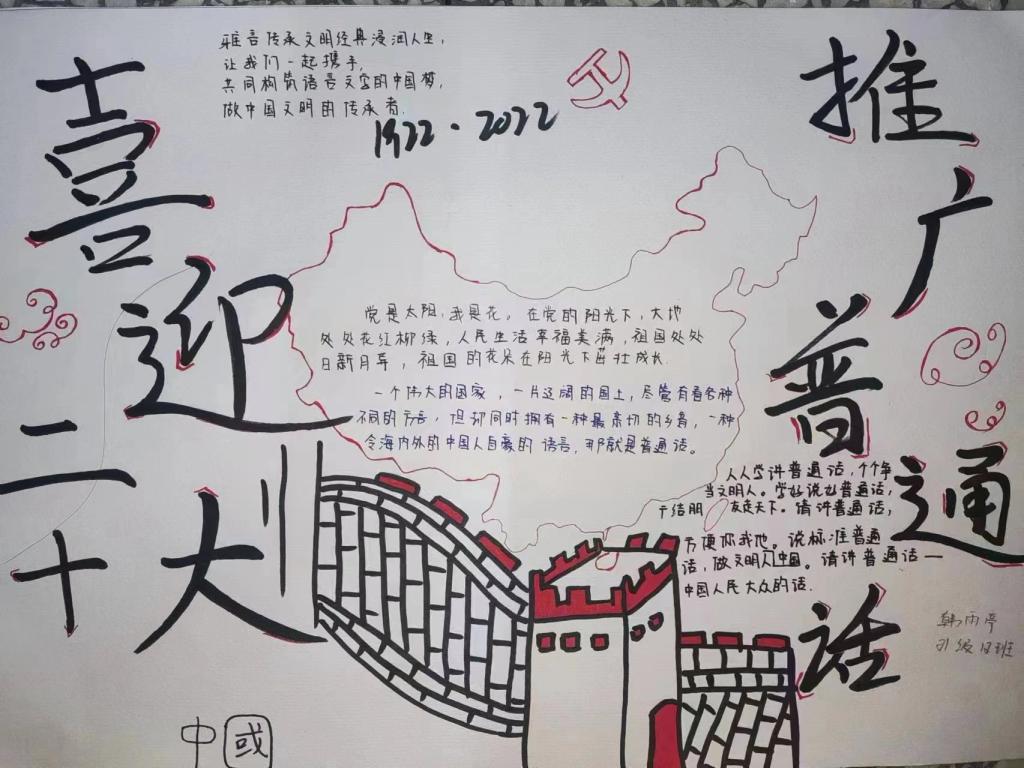 喜迎二十大
推广普通话
雅言传承文明经典浸润人生，
让我们一起携手，
共同构筑语言文字的中国梦，
做中国文明的传承者.
1922·2022
党是太阳，我是花，在党的阳光下，大地
处处花红柳绿，人民生活幸福美满，祖国处处
日新月异，祖国的花朵在阳光下茁壮成长.
一个伟大的国家，一片辽阔的国土，尽管有着各种
不同的方言，但却同时拥有一种最亲切的乡音，一种
令海内外的中国人自豪的语言，那就是普通话。
人人学讲普通话，个个争
当文明人。学好说好普通话，
于结朋友走天下。请讲普通话，
方便你我他。说标准普通
话，做文明人中国。请讲普通话一
中国人民大众的话.
韩雨
21级12班
中國